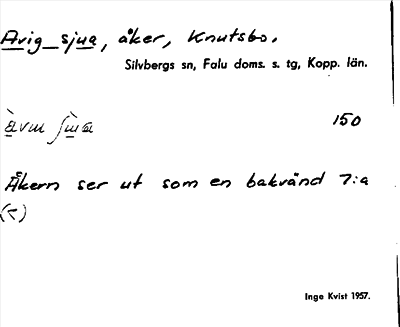 Avig sjua, åker, Knutsbo.
Silvbergs sn, Falu doms. s. tg, Kopp. län.
150
Åkern ser ut som en bakvänd 7:a
Inge Kvist 1957.